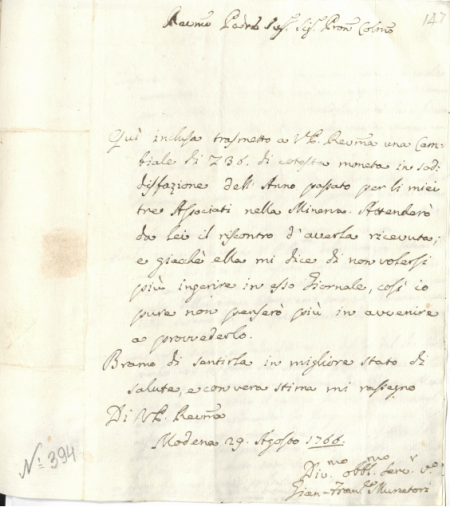 147
Revmo Padre Sig. Sig. Pron Colmo
Quì inclusa trasmetto a V. P. Revma una Cam-
biale di 736. di cotesta moneta in sod-
disfazione dell'Anno passato per li miei
tre Associati nella Minerva. Attenderò
da lei il riscontro d'averla ricevuta;
e giachè ella mi dice di non volersi
più ingerire in esso Giornale, così io
pure non penserò più in avvenire
a provvederlo.
Bramo di sentirla in migliore stato di
salute, e con vera stima mi rassegno
Di V. P. Revma
Modena 29. Agosto 1766.
Divmo obblmo Servr vo
Gian-Francso Muratori
No 394